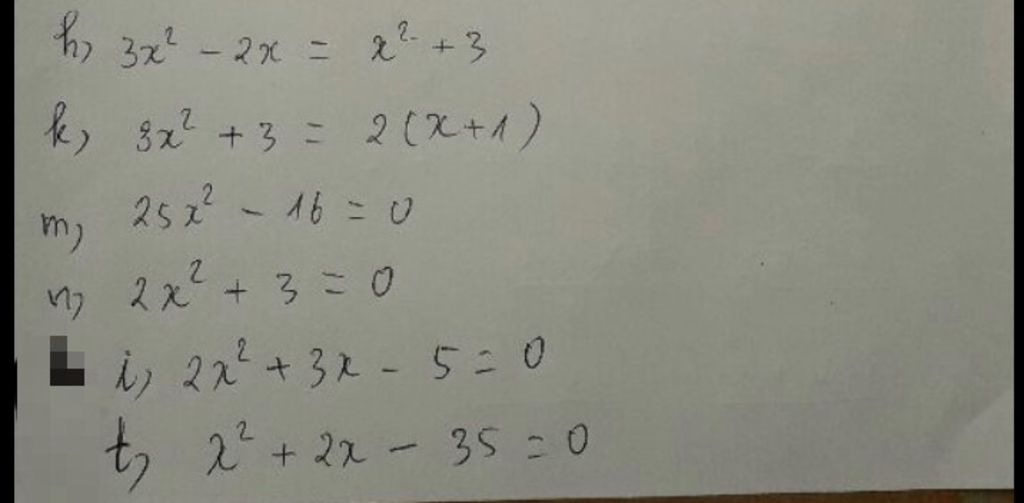 h, 3x² - 2x = x² + 3
k, 3x² + 3 = 2(x+1)
m, 25x² - 16 = 0
n, 2x² + 3 = 0
i, 2x² + 3x - 5 = 0
t, x² + 2x - 35 = 0